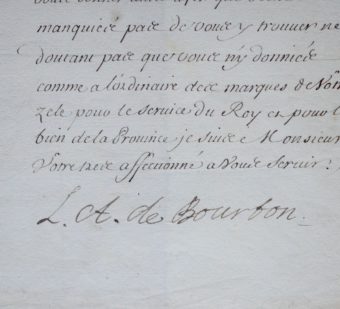 manquiéés pas de vous y trouver ne
doutant pas que vous n'y donniés
comme a l'ordinaire des marques de
zele pour le service du Roy et pour le
bien de la Province je suis Monsieur
Votre tres affectionné a Vous servir.
L. A. de Bourbon.